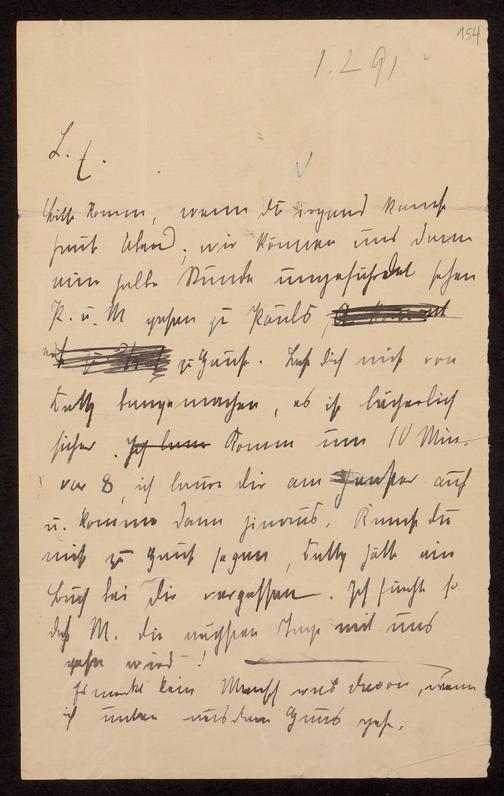 154
1. 2 91
L. E.
Bitte komm, wenn du irgend kannst
heut Abend; wir können uns dann
eine halbe Stunde ungefährdet sehen
K. u. M gehen zu Pauls
zu Haus. Lass dich nicht von
Tutty bangemachen, es ist lächerlich
sicher. Ich komm um 10 Min.
vor 8, ich laure dir am Fenster auf
u. komme dann hinaus. Kannst du
nicht zu Haus sagen, Tutty hätte ein
Buch bei dir vergessen. Ich fürchte so
daß M. die nächsten Tage mit uns
gehn wird!
Es merkt kein Mensch was davon, wenn
ich unten aus dem Haus gehe.